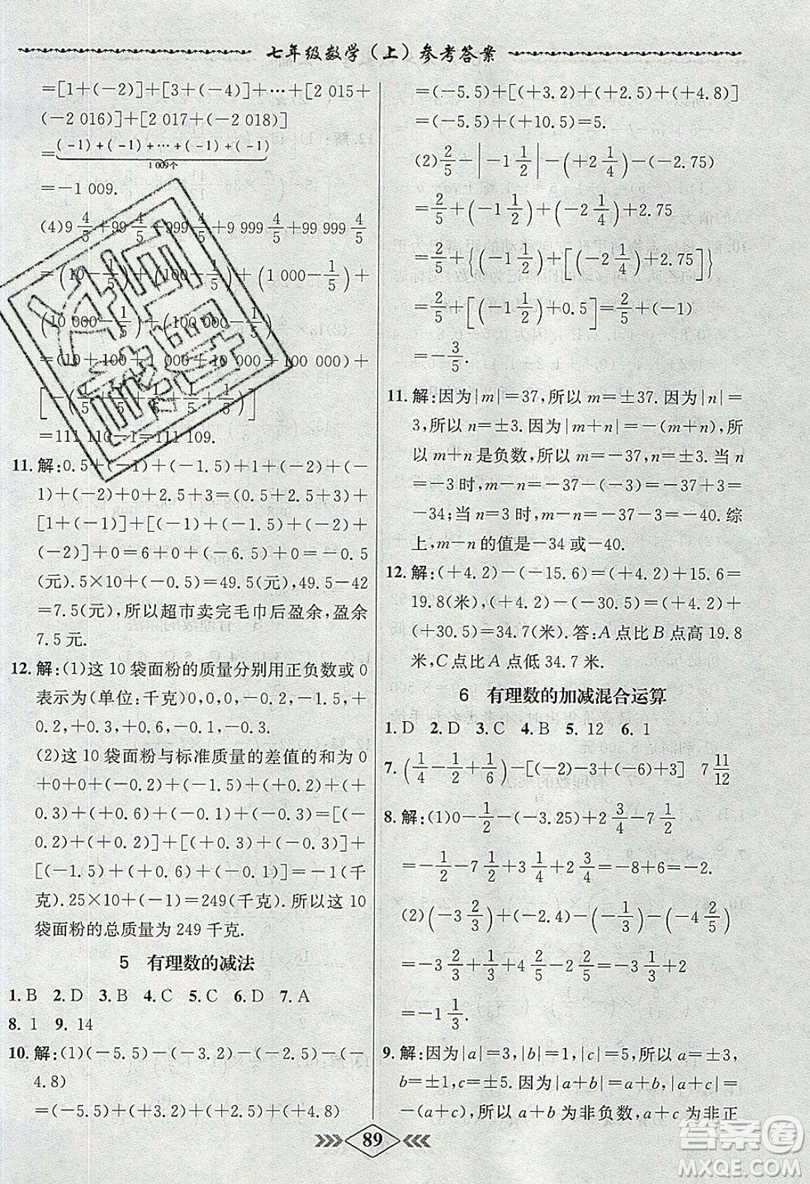 七年级数学(上)参考答案
=[1+(-2)]+[3+(-4)]+…+[2 015+
(-2 016)]+[2 017+(-2 018)]
=(-1)+(-1)+…+(-1)+(-1)
1 009个
=-1 009.
(4)9 4/5+99 4/5+999 4/5+9 999 4/5+99 999 4/5
=(10-1/5)+(100-1/5)+(1 000-1/5)+
(10 000-1/5)+(100 000-1/5)
=(10+100+1 000+10 000+100 000)+
[-(1/5+1/5+1/5+1/5+1/5)]
=111 110-1=111 109.
11.解:0.5+(-1)+(-1.5)+1+(-2)+(-
1)+(-1)+2+(-1)+0=[0.5+(-1)]+
[(-1)+1]+[(-1)+(-1.5)+(-2)+
(-2)]+0+6=0+0+(-6.5)+0=-0.5
(元).5×10+(-0.5)=49.5(元),49.5-42
=7.5(元),所以超市卖完毛巾后盈余,盈余
7.5元.
12.解:(1)这10袋面粉的质量分别用正负数或0
表示为(单位:千克)-0.2,-0.3,-0.5,
+0.2,+0.3,-0.6,+0.1,0,0,0.
(2)这10袋面粉与标准质量的差值的和为0
+0+0+(-0.2)+(+0.2)+(-0.3)+
(+0.3)+[(-0.5)+(-0.6)+(+0.1)]=
[(-0.2)+(+0.2)]+[(-0.3)+(+0.3)]+
[(-0.5)+(-0.6)+(+0.1)]=-1(千
克).25×10+(-1)=249(千克).所以这10
袋面粉的总质量为249千克.
5 有理数的减法
1.B 2.D 3.B 4.C 5.C 6.D 7.A
8.1 9.14
10.解:(1)(-5.5)-(-3.2)-(-2.5)-(-
4.8)
=(-5.5)+(+3.2)+(+2.5)+(+4.8)
=(-5.5)+[(+3.2)+(+2.5)+(+4.8)]
=(-5.5)+(+10.5)=5.
(2)2/5-|-1 1/2|-(+2 1/4)-(-2.75)
=2/5+(-1 1/2)+(-2 1/4)+2.75
=2/5+{(-1 1/2)+[(-2 1/4)+2.75]}
=2/5+[(-1 1/2)+0.5]=2/5+(-1)
=-3/5.
11.解:因为|m|=37,所以m=±37.因为|n|=
3,所以n=±3.因为m是负数,所以m=-37.当n
=-3时,m-n=-37-(-3)=-37+3=
-34;当n=3时,m-n=-37-3=-40.综
上,m-n的值是-34或-40.
12.解:(+4.2)-(-15.6)=(+4.2)+15.6=
19.8(米),(+4.2)-(-30.5)=(+4.2)+
(+30.5)=34.7(米).答:A点比B点高19.8
米,C点比A点低34.7米.
6 有理数的加减混合运算
1.D 2.D 3.C 4.B 5.12 6.1
7.(1/4-1/2+1/6)-[-2-3+(-6)+3] 7 11/12
8.解:(1)0-1/2-(-3.25)+2 3/4-7 1/2
=-1/2-7 1/2+3 1/4+2 3/4=-8+6=-2.
(2)(-3 2/5)-(-4 2/3)+(-1/3)-(-2 2/5)
=-3 2/5+2 2/5-4 2/3-1/3=-1-1/3
=-1 1/3.
9.解:因为|a|=3,|b|=1,|c|=5,所以a=±3,
b=±1,c=±5.因为|a+b|=a+b,|a+c|=
-(a+c),所以a+b为非负数,a+c为非正
89
答案圈
MXQE.COM